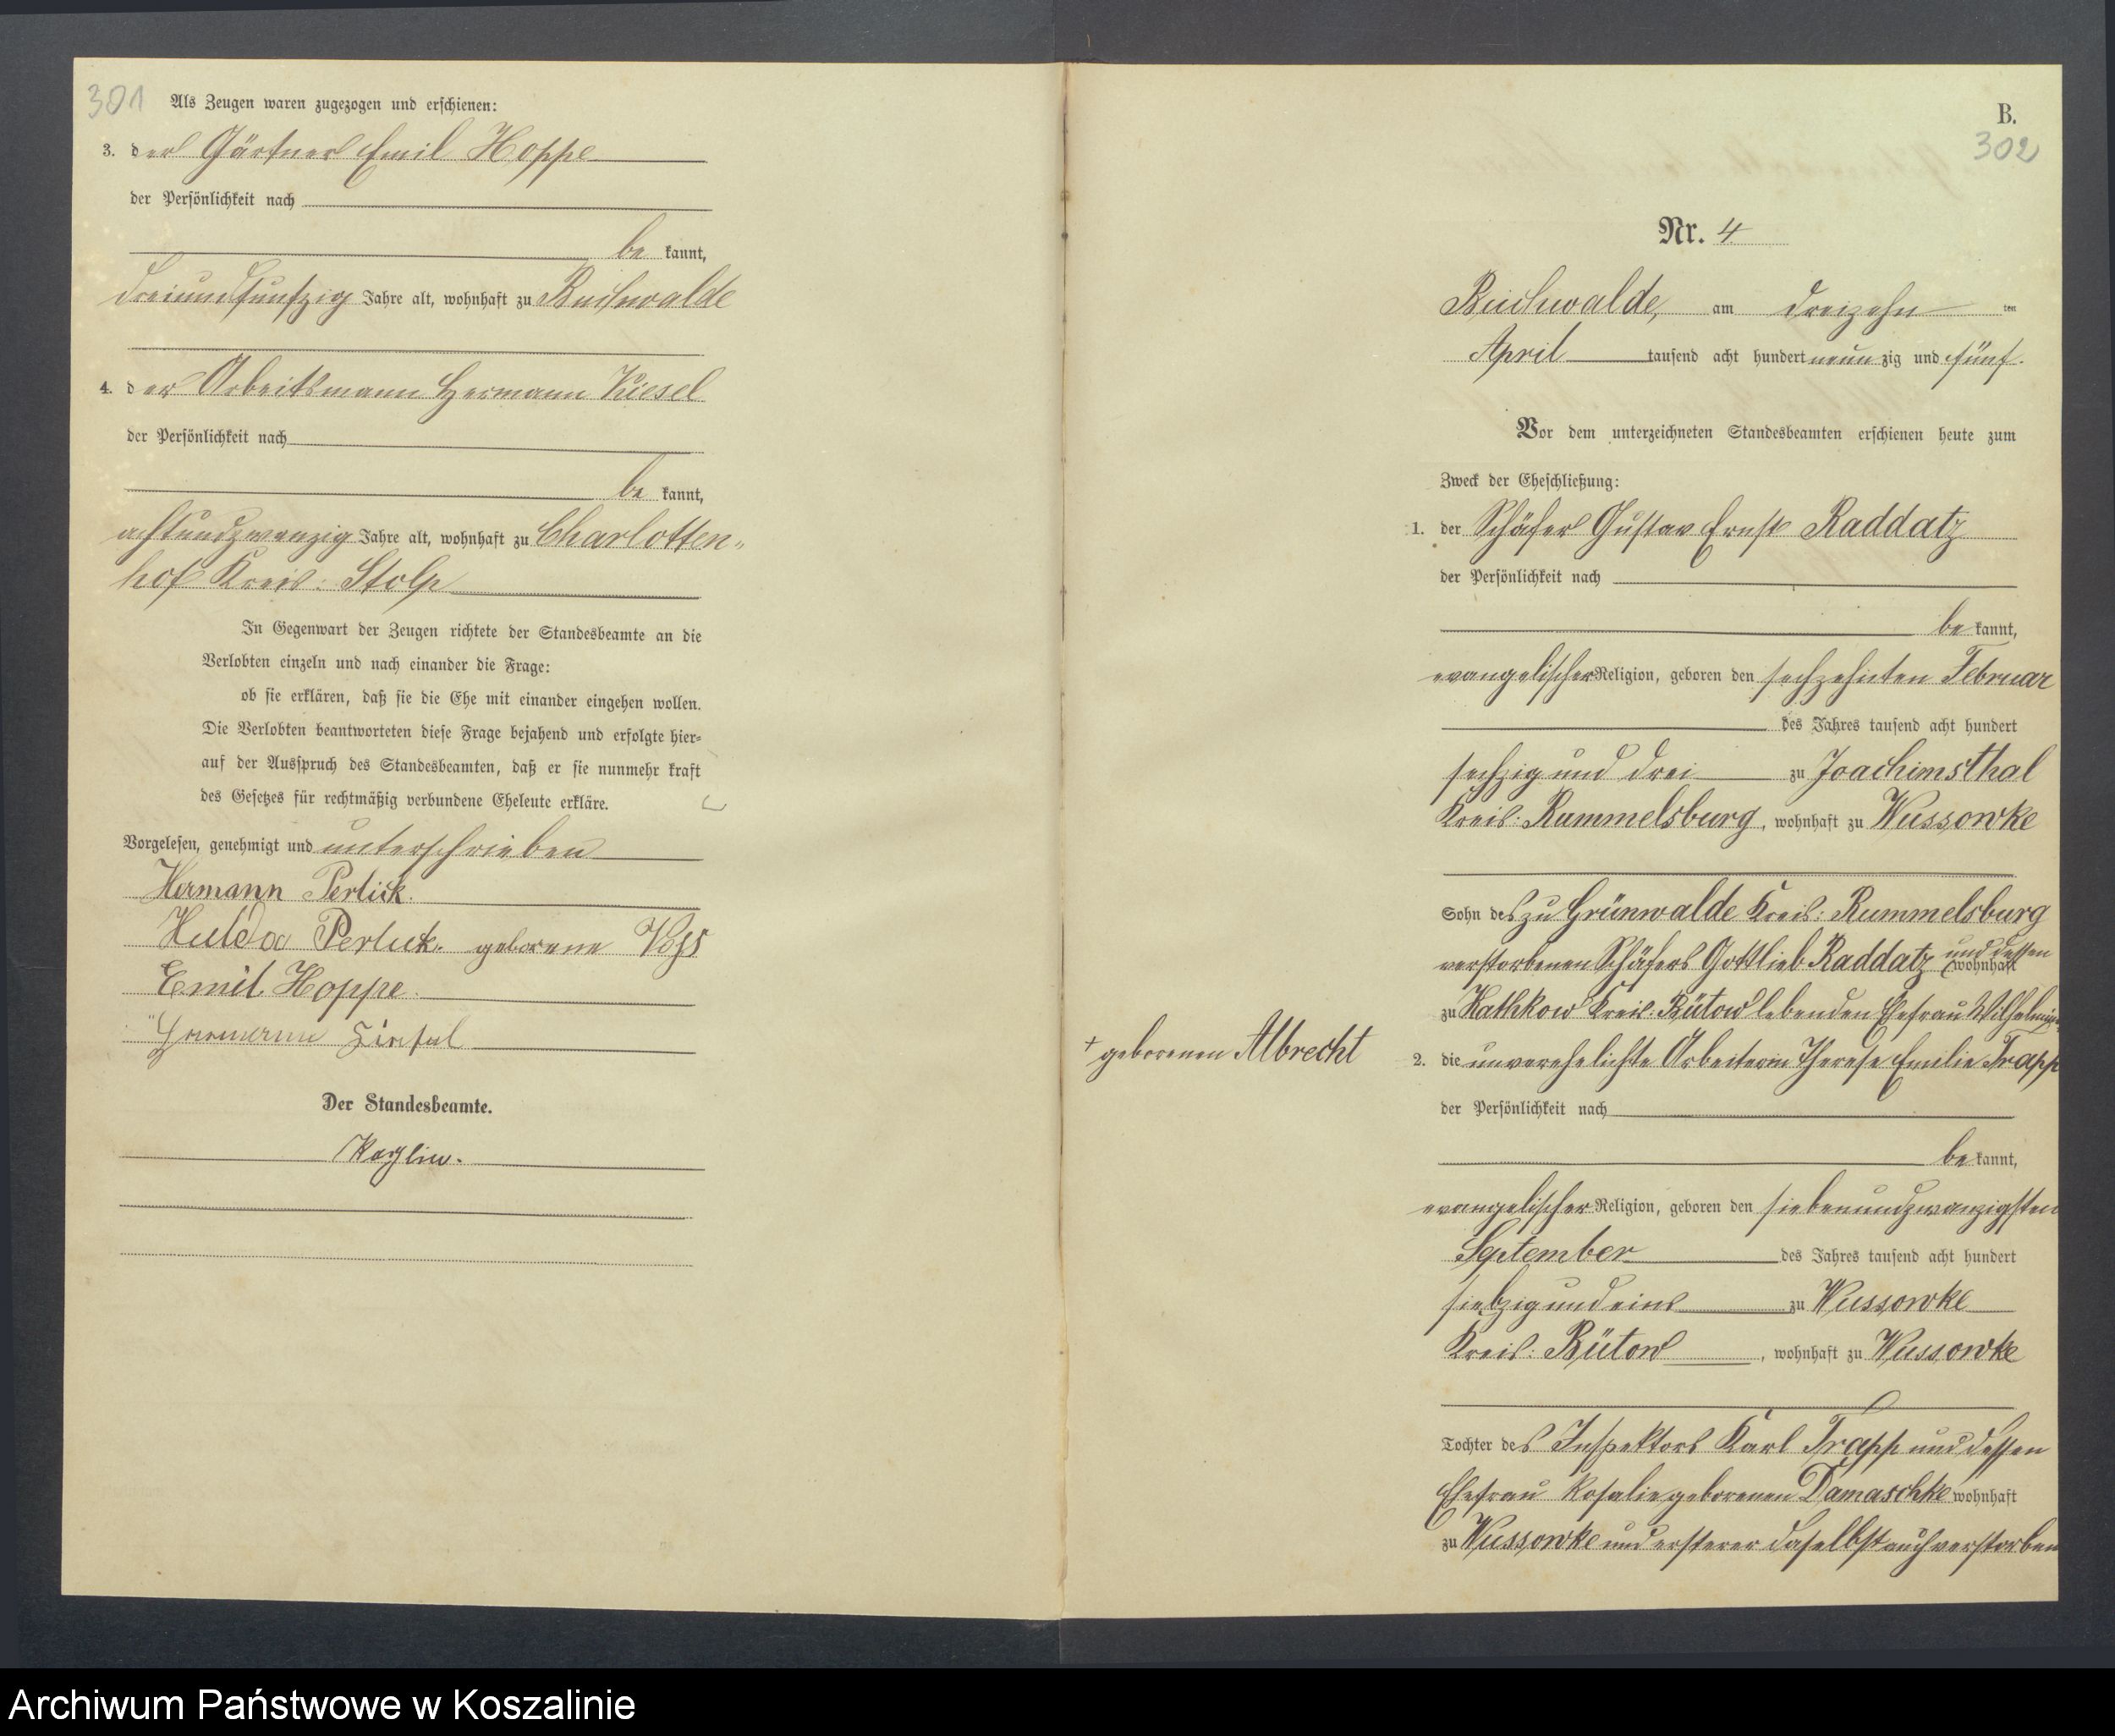 301
Als Zeugen waren zugezogen und erschienen:
3. der Gärtner Emil Hoppe
der Persönlichkeit nach
be kannt,
dreiundfunfzig Jahre alt, wohnhaft zu Buchwalde
4. der Arbeitsmann Hermann Kiesel
der Persönlichkeit nach
be kannt,
achtundzwanzig Jahre alt, wohnhaft zu Charlotten„
hof Kreis: Stolp
In Gegenwart der Zeugen richtete der Standesbeamte an die
Verlobten einzeln und nach einander die Frage:
ob sie erklären, daß sie die Ehe mit einander eingehen wollen.
Die Verlobten beantworteten diese Frage bejahend und erfolgte hier-
auf der Ausspruch des Standesbeamten, daß er sie nunmehr kraft
des Gesetzes für rechtmäßig verbundene Eheleute erkläre.
Vorgelesen, genehmigt und unterschrieben
Hermann Perlick.
Hulda Perlick. geborene Voss
Emil Hoppe.
Hermann
Der Standesbeamte.
B.
302
Nr. 4
Buchwalde, am dreizehn ten
April tausend acht hundert neun zig und fünf.
Vor dem unterzeichneten Standesbeamten erschienen heute zum
Zweck der Eheschließung:
1. der Schäfer Gustav Ernst Raddatz
der Persönlichkeit nach
be kannt,
evangelischer Religion, geboren den sechzehnten Februar
des Jahres tausend acht hundert
sechzig und drei zu Joachimsthal
Kreis: Rummelsburg, wohnhaft zu Wussowke
Sohn des zu Grünwalde Kreis: Rummelsburg
verstorbenen Schäfers Gottlieb Raddatz und dessen wohnhaft
zu Kathkow Kreis: Bütow lebenden Ehefrau Wilhelmine
+ geborenen Albrecht
2. die unverehelichte Arbeiterin Therese Emilie Trapp
der Persönlichkeit nach
be kannt,
evangelischer Religion, geboren den siebenundzwanzigsten
September des Jahres tausend acht hundert
siebzig und eins zu Wussowke
Kreis: Bütow, wohnhaft zu Wussowke
Tochter des Inspektors Karl Trapp und dessen
Ehefrau Rosalie geborenen Damaschke wohnhaft
zu Wussowke und ersterer daselbst auch verstorben
Archiwum Państwowe w Koszalinie